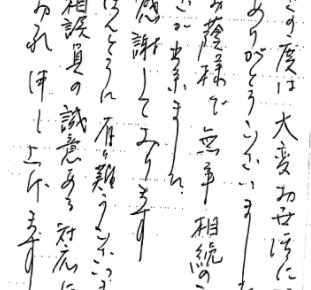 この度は 大変お世話に
ありがとうございました
お蔭様で 無事 相続の
が出来ました
感謝しております
ほんとうに 有難うございま
相談員の 誠意ある 対応に
お礼 申し上げます